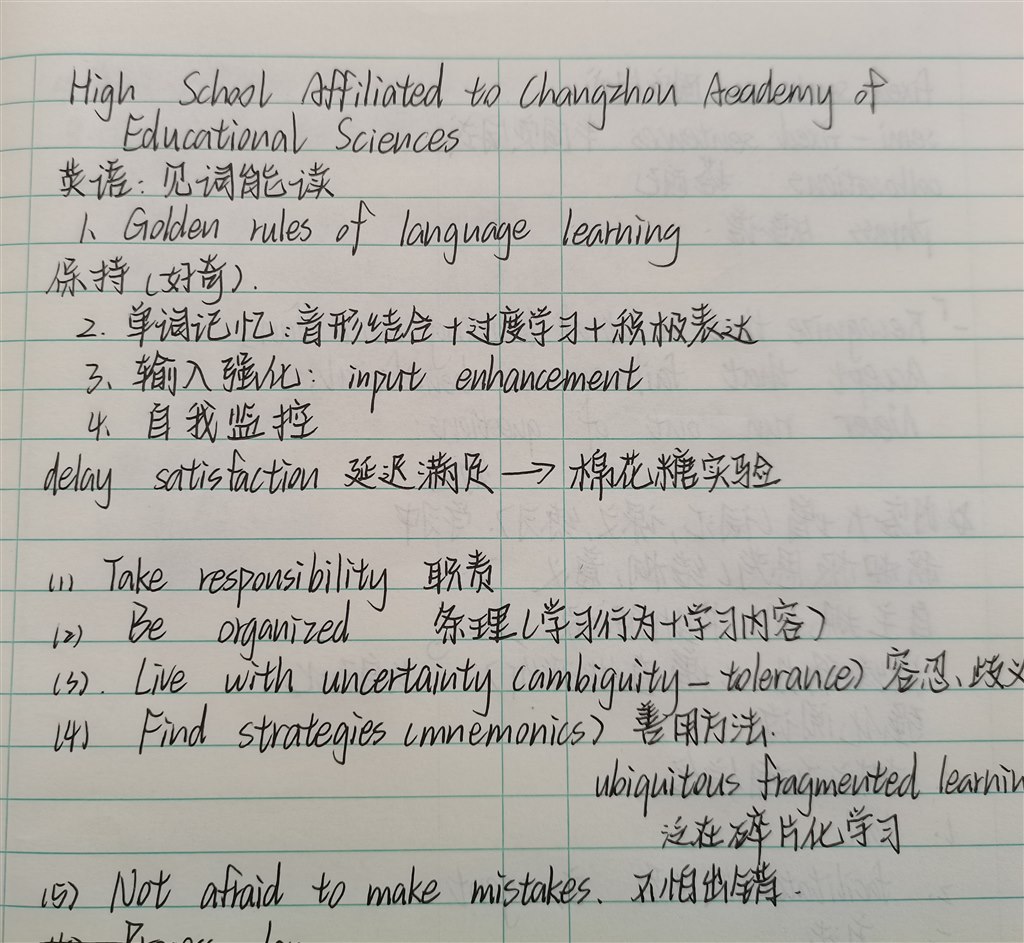 High School Affiliated to Changzhou Academy of
Educational Sciences
英语：见词能读
1、Golden rules of language learning
保持（好奇）.
2、单词记忆：音形结合+过度学习+积极表达
3、输入强化：input enhancement
4、自我监控
delay satisfaction 延迟满足→棉花糖实验
(1) Take responsibility 职责
(2) Be organized 条理（学习行为+学习内容）
(3). Live with uncertainty (ambiguity-tolerance) 容忍、歧义
(4) Find strategies (mnemonics) 善用方法.
ubiquitous fragmented learnin
泛在碎片化学习
(5) Not afraid to make mistakes. 不怕出错.